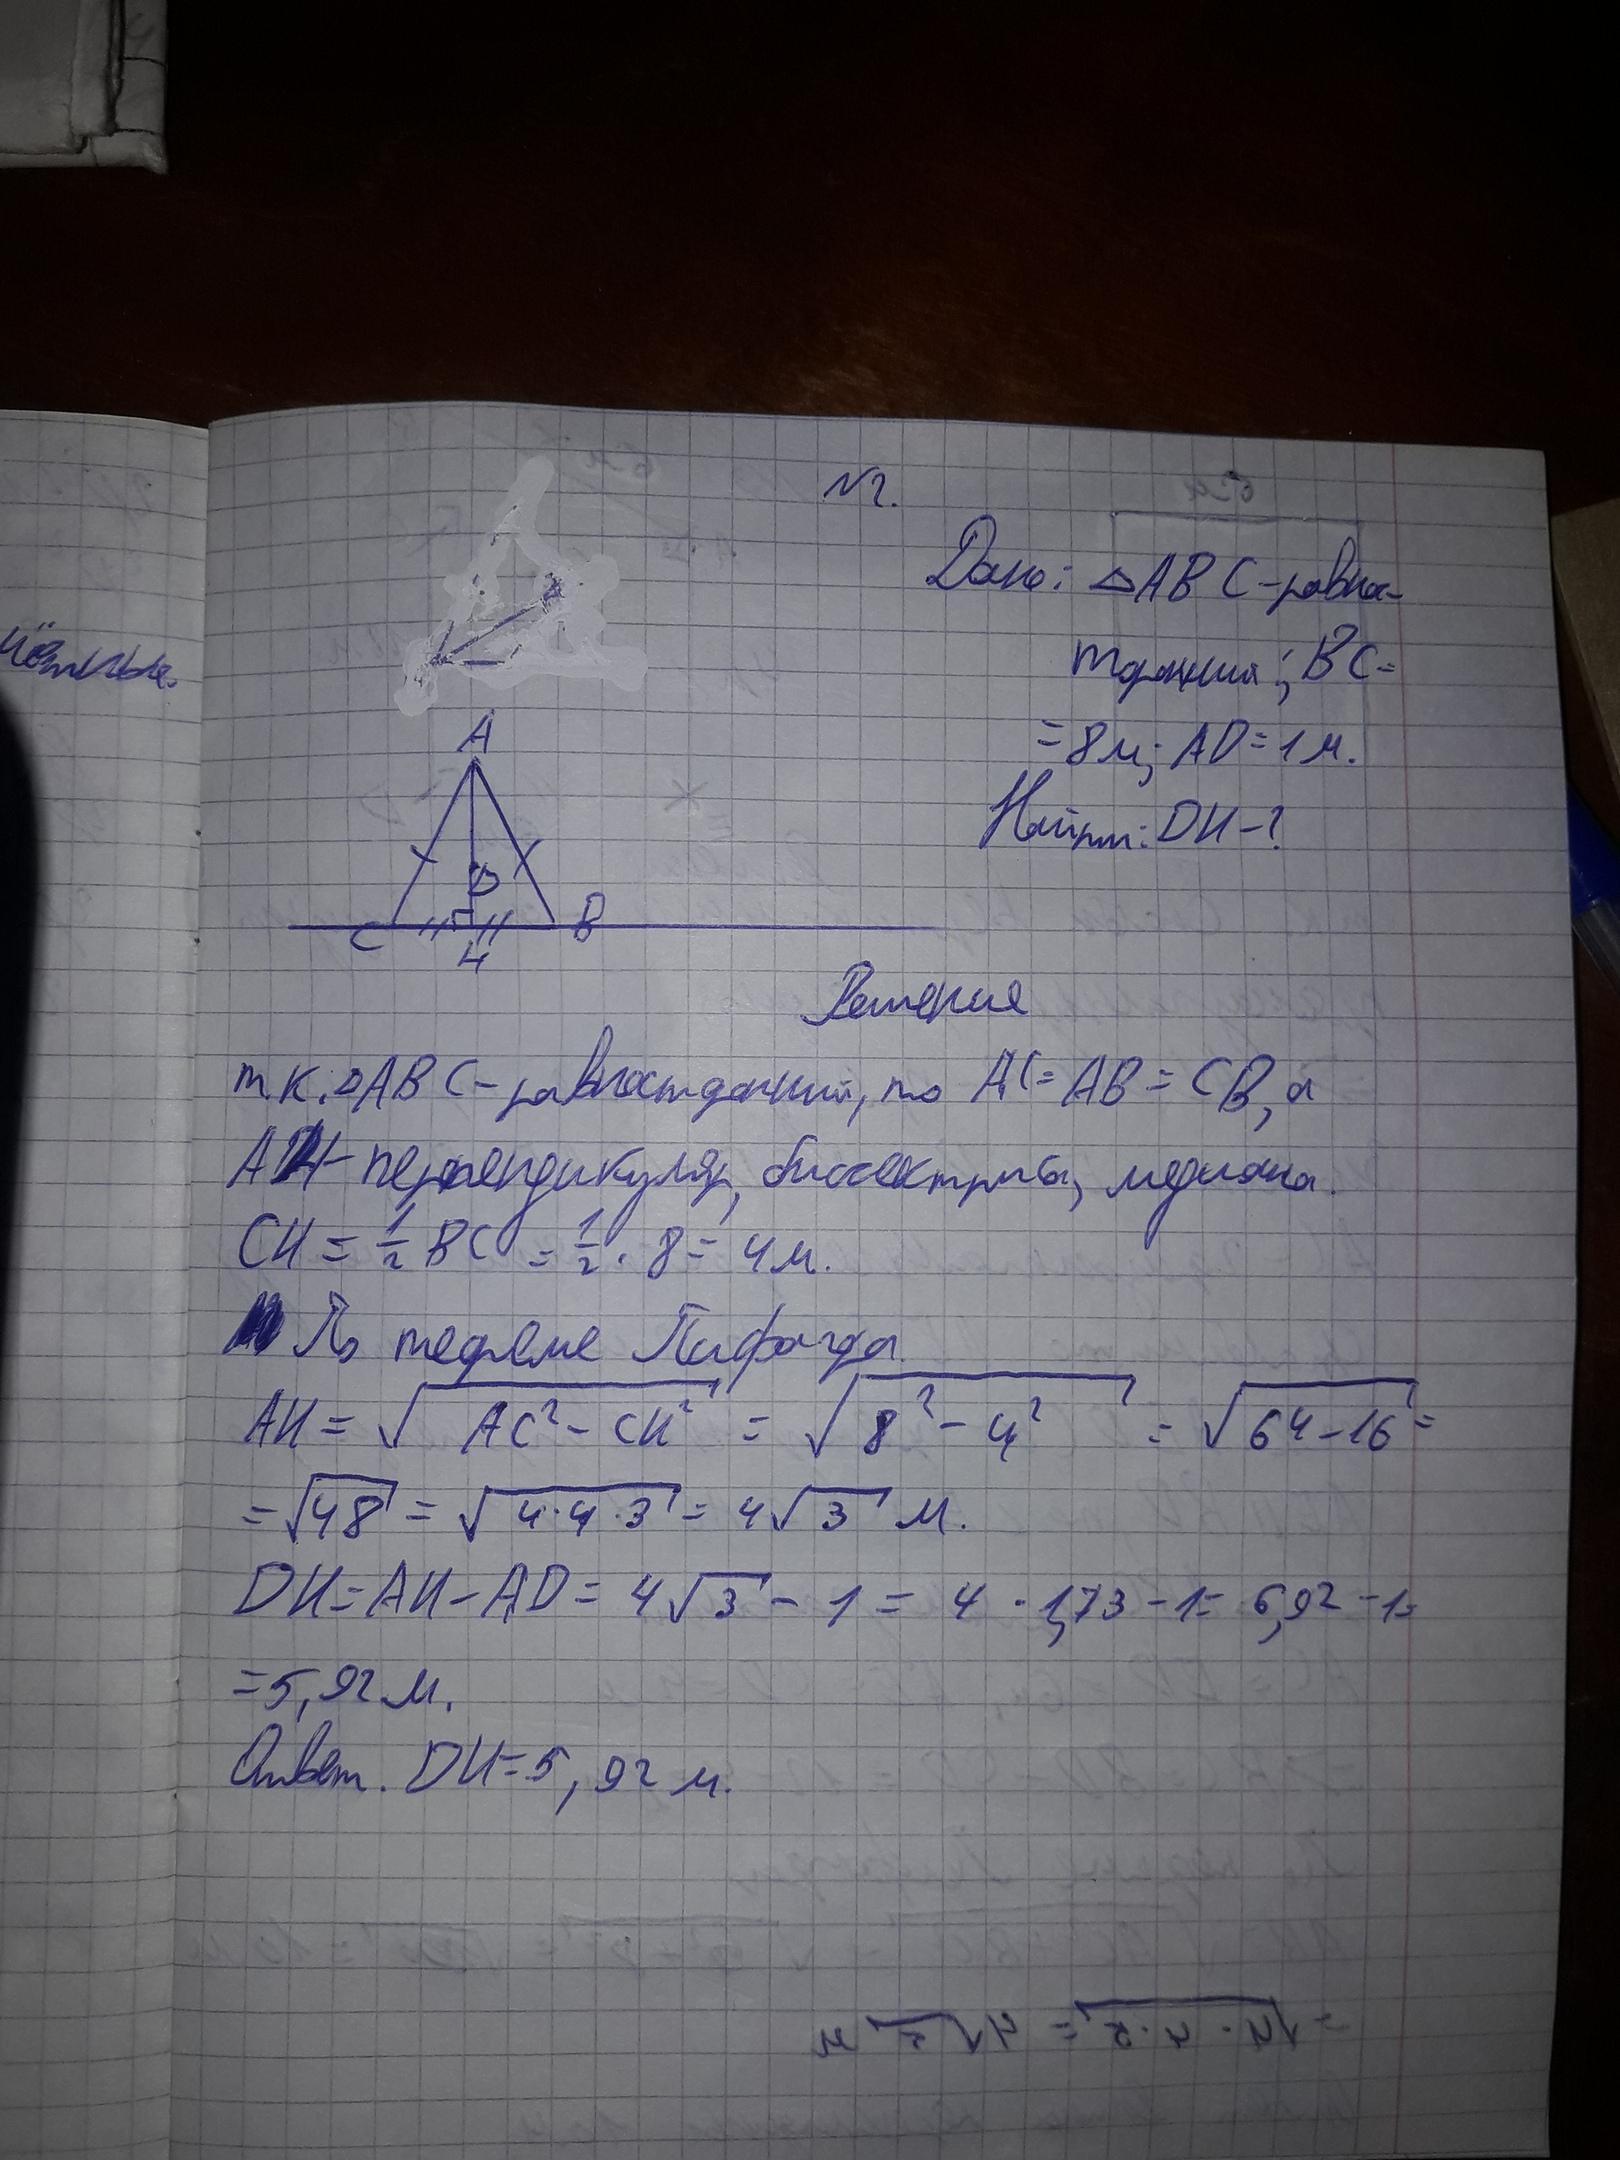 №2.
Дано: △ABC-равнос-
торонний; BC=
=8м; AD=1м.
Найти: DH-?
A
D
C B
H
Решение
т.к. △ABC-равносторонний, то AC=AB=CB, а
AH-перпендикуляр, биссектриса, медиана.
CH = 1/2 BC = 1/2 · 8 = 4м.
По теореме Пифагора
AH = √(AC² - CH²) = √(8² - 4²) = √(64-16) =
= √48 = √(4·4·3) = 4√3 м.
DH=AH-AD= 4√3 - 1 = 4 · 1,73 - 1= 6,92 - 1=
=5,92м.
Ответ. DH=5,92 м.